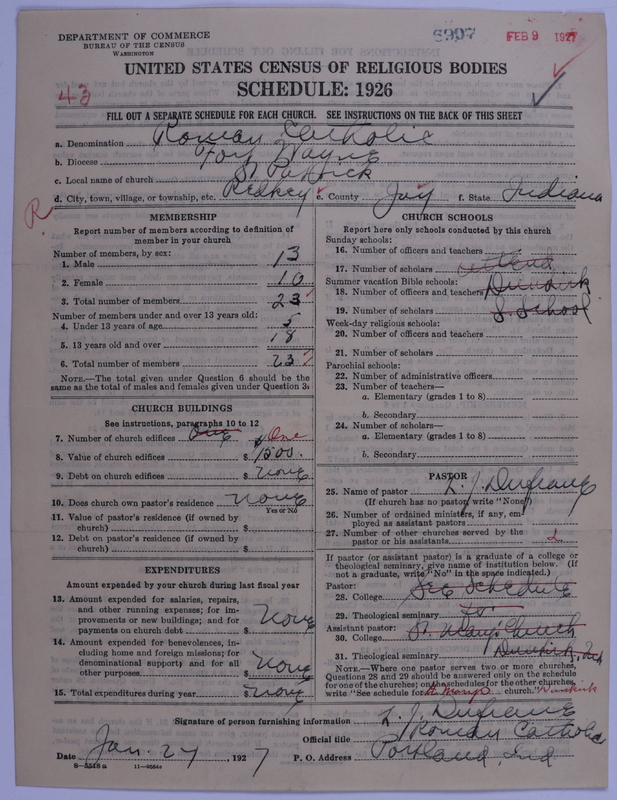 DEPARTMENT OF COMMERCE
BUREAU OF THE CENSUS
WASHINGTON
6907 FEB 9 1927
UNITED STATES CENSUS OF RELIGIOUS BODIES
SCHEDULE: 1926
43
FILL OUT A SEPARATE SCHEDULE FOR EACH CHURCH. SEE INSTRUCTIONS ON THE BACK OF THIS SHEET
a. Denomination Roman Catholic
b. Diocese Fort Wayne
c. Local name of church St Patrick
d. City, town, village, or township, etc. Redkey e. County Jay f. State Indiana
R
MEMBERSHIP
Report number of members according to definition of
member in your church
Number of members, by sex:
1. Male 13
2. Female 10
3. Total number of members 23
Number of members under and over 13 years old:
4. Under 13 years of age 5
5. 13 years old and over 18
6. Total number of members 23
NOTE.—The total given under Question 6 should be the
same as the total of males and females given under Question 3.
CHURCH BUILDINGS
See instructions, paragraphs 10 to 12
7. Number of church edifices One One
8. Value of church edifices $ 1500.
9. Debt on church edifices $ none
10. Does church own pastor's residence none
Yes or No
11. Value of pastor's residence (if owned by
church) $
12. Debt on pastor's residence (if owned by
church) $
EXPENDITURES
Amount expended by your church during last fiscal year
13. Amount expended for salaries, repairs,
and other running expenses; for im-
provements or new buildings; and for
payments on church debt $ none
14. Amount expended for benevolences, in-
cluding home and foreign missions; for
denominational support; and for all
other purposes $ none
15. Total expenditures during year $ none
CHURCH SCHOOLS
Report here only schools conducted by this church
Sunday schools:
16. Number of officers and teachers
17. Number of scholars attend
Summer vacation Bible schools:
18. Number of officers and teachers Dunkirk
19. Number of scholars S. School
Week-day religious schools:
20. Number of officers and teachers
21. Number of scholars
Parochial schools:
22. Number of administrative officers
23. Number of teachers—
a. Elementary (grades 1 to 8)
b. Secondary
24. Number of scholars—
a. Elementary (grades 1 to 8)
b. Secondary
PASTOR
25. Name of pastor L. J. Dufrane
(If church has no pastor, write "None")
26. Number of ordained ministers, if any, em-
ployed as assistant pastors
27. Number of other churches served by the
pastor or his assistants 2
If pastor (or assistant pastor) is a graduate of a college or
theological seminary, give name of institution below. (If
not a graduate, write "No" in the space indicated.)
Pastor:
28. College See Schedule
29. Theological seminary for
Assistant pastor:
30. College St Mary's Church
31. Theological seminary Dunkirk, Ind
NOTE.—Where one pastor serves two or more churches,
Questions 28 and 29 should be answered only on the schedule
for one of the churches; on the schedules for the other churches,
write "See schedule for St Marys church." Dunkirk
Signature of person furnishing information L. J. Dufrane
Official title Roman Catholic
Date Jan. 27, 1927 P. O. Address Portland, Ind
8—5518a 11—9554a